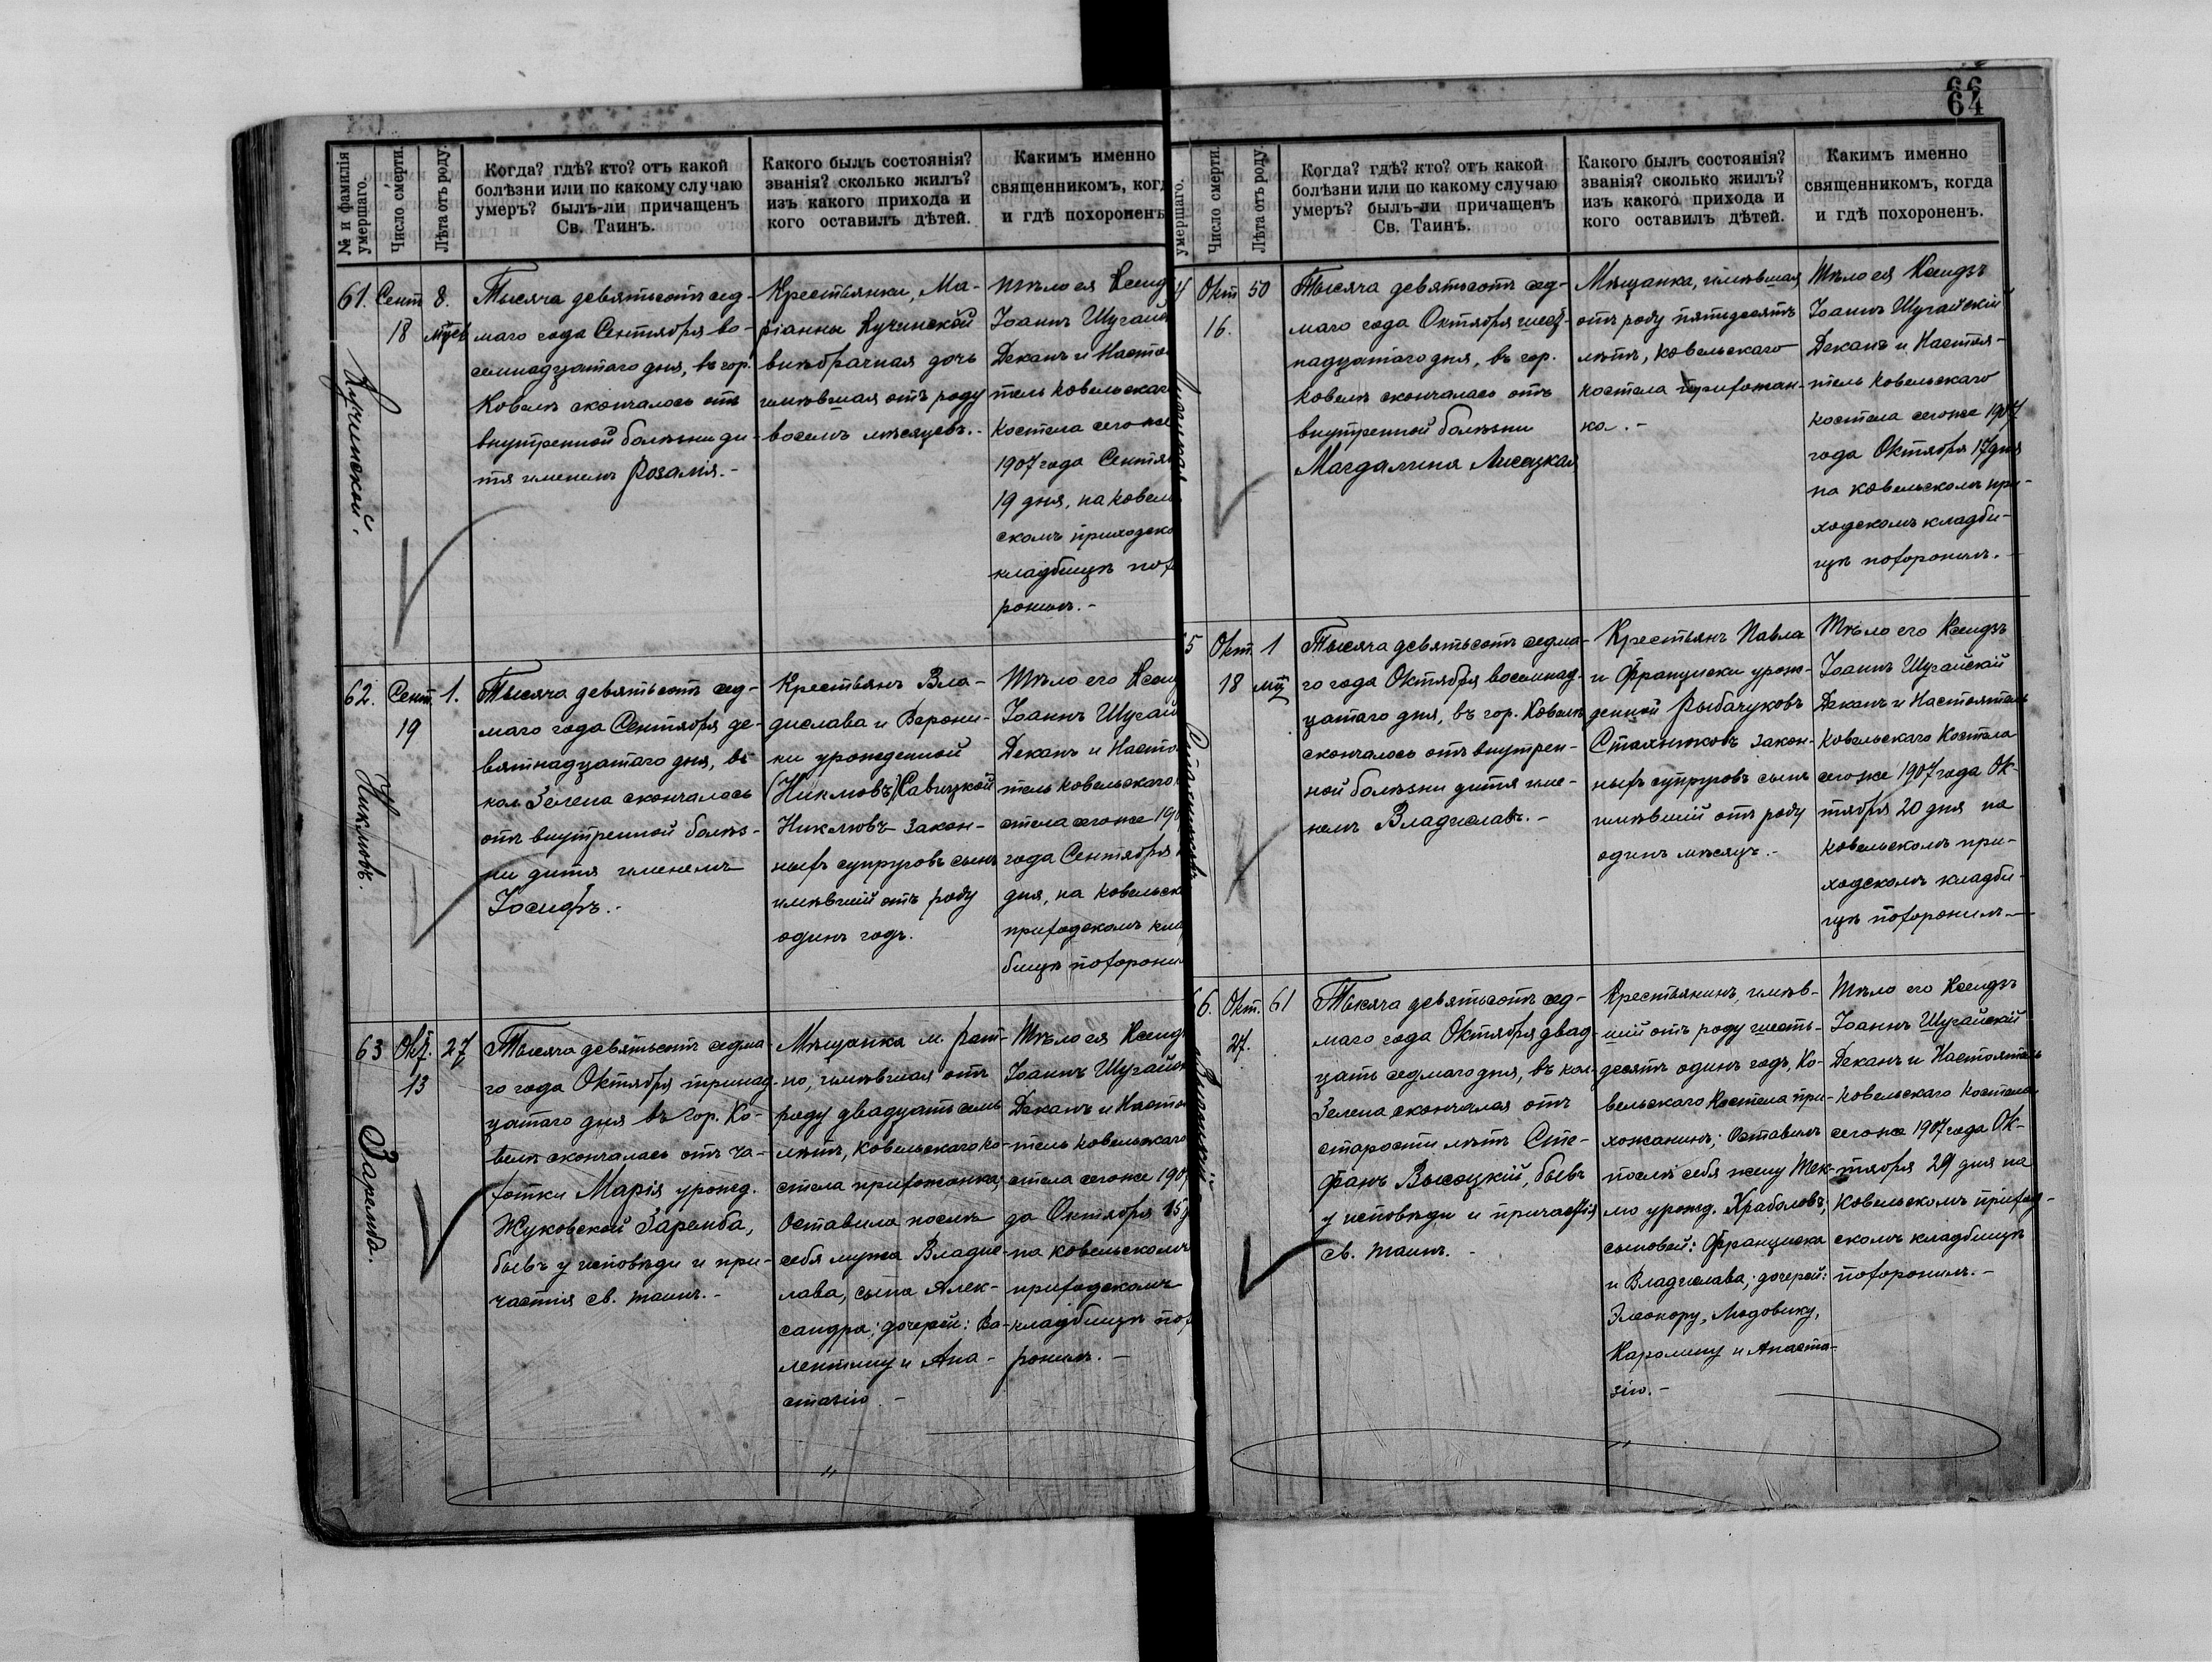 66
64
№ и фамилія
умершаго.
Число смерти.
Лѣта отъ роду.
Когда? гдѣ? кто? отъ какой
болѣзни или по какому случаю
умеръ? былъ-ли причащенъ
Св. Таинъ.
Какого былъ состоянія?
званія? сколько жилъ?
изъ какого прихода и
кого оставилъ дѣтей.
Какимъ именно
священникомъ, ког
и гдѣ похороненъ
61.
Кучинской.
Сент
18
8.
мѣсяц
Тысяча девятьсотъ сед-
маго года Сентября во-
семнадцатаго дня, въ гор.
Ковелѣ скончалось отъ
внутренной болѣзни ди-
тя именемъ Розалія.-
Крестьянки, Ма-
ріанны Кучинской
внѣбрачная дочь
имѣвшая отъ роду
восемь мѣсяцевъ.-
Тѣло ея Ксенд
Іоаннъ Шугай
Деканъ и Насто
тель Ковельскаг
Костела сего же
1907 года Сентя
19 дня, на Ковел
скомъ приходско
кладбищѣ пох
ронилъ.-
62.
Никловъ.
Сент.
19
1.
Тысяча девятьсотъ сед-
маго года Сентября де-
вятнадцатаго дня, въ
кол Зелена скончалось
отъ внутренной болѣз-
ни дитя именемъ
Іосифъ.-
Крестьянъ Вла-
дислава и Верони-
ки урожденной
(Никловъ) Савицкой
Никловъ закон-
ныхъ супруговъ сынъ
имѣвшій отъ роду
одинъ годъ.
Тѣло его Ксенд
Іоаннъ Шугай
Деканъ и Насто
тель Ковельскаго
стела сего же 190
года Сентября
дня, на Ковельск
приходскомъ кла
бищѣ похорони
63
Заремба.
Окт.
13
27
Тысяча девятьсотъ седма
го года Октября тринад
цатаго дня въ гор. Ко-
велѣ скончалась отъ ча-
хотки Марія урожд.
Жуковской Заремба,
бывъ у исповѣди и при-
частія св. таинъ.-
Мѣщанка м.
но, имѣвшая отъ
роду двадцать семь
лѣтъ, Ковельскаго ко-
стела прихожанка,
Оставила послѣ
себя мужа Владис-
лава, сына Алек-
сандра; дочерей: Ва-
лентину и Ана-
стазію.-
Тѣло ея Ксенд
Іоаннъ Шугайск
Деканъ и Насто
тель Ковельскаго
стела сего же 190
да Октября 15 д
на Ковельскомъ
приходскомъ
кладбищѣ пох
ронилъ.-
умершаго.
Число смерти.
Лѣта отъ роду.
Когда? гдѣ? кто? отъ какой
болѣзни или по какому случаю
умеръ? былъ-ли причащенъ
Св. Таинъ.
Какого былъ состоянія?
званія? сколько жилъ?
изъ какого прихода и
кого оставилъ дѣтей.
Какимъ именно
священникомъ, когда
и гдѣ похороненъ.
4
Окт
16.
50
Тысяча девятьсотъ сед-
маго года Октября шест-
надцатаго дня, въ гор.
Ковелѣ скончалась отъ
внутренной болѣзни
Магдалина Лисецкая
Мѣщанка, имѣвшая
отъ роду пятидесятъ
лѣтъ, Ковельскаго
Костела прихожан-
ка.-
Тѣло ея Ксендзъ
Іоаннъ Шугайскій
Деканъ и Настоя-
тель Ковельскаго
костела сего же 1907
года Октября 17 дня
на Ковельскомъ при-
ходскомъ кладби-
щѣ похоронилъ.-
5
Стахнюковъ
Окт.
18
1
мц
Тысяча девятьсотъ седма-
го года Октября восемнад-
цатаго дня, въ гор. Ковелѣ
скончалось отъ внутрен-
ной болѣзни дитя име-
немъ Владиславъ.-
Крестьянъ Павла
и Франциски урож-
денной Рыбачуковъ
Стахнюковъ закон-
ныхъ супруговъ сынъ
имѣвшій отъ роду
одинъ мѣсяцъ.-
Тѣло его Ксендзъ
Іоаннъ Шугайскій
Деканъ и Настоятель
Ковельскаго Костела
сего же 1907 года Ок-
тября 20 дня на
Ковельскомъ при-
ходскомъ кладби-
щѣ похоронилъ.-
6.
Высоцкій
Окт.
27.
61
Тысяча девятьсотъ сед-
маго года Октября двад-
цать седмаго дня, въ кол.
Зелена скончался отъ
старости лѣтъ Сте-
фанъ Высоцкій, бывъ
у исповѣди и причастія
св. таинъ.-
Крестьянинъ, имѣв-
шій отъ роду шесть-
десятъ одинъ годъ, Ко-
вельскаго Костела при-
хожанинъ; Оставилъ
послѣ себя жену Тек-
лю урожд. Храболовъ;
сыновей: Франциска
и Владислава; дочерей:
Элеонору, Людовику,
Каролину и Анаста-
зію.-
Тѣло его Ксендзъ
Іоаннъ Шугайскій
Деканъ и Настоятель
Ковельскаго Костела
сего же 1907 года Ок-
тября 29 дня на
Ковельскомъ приход-
скомъ кладбищѣ
похоронилъ.-